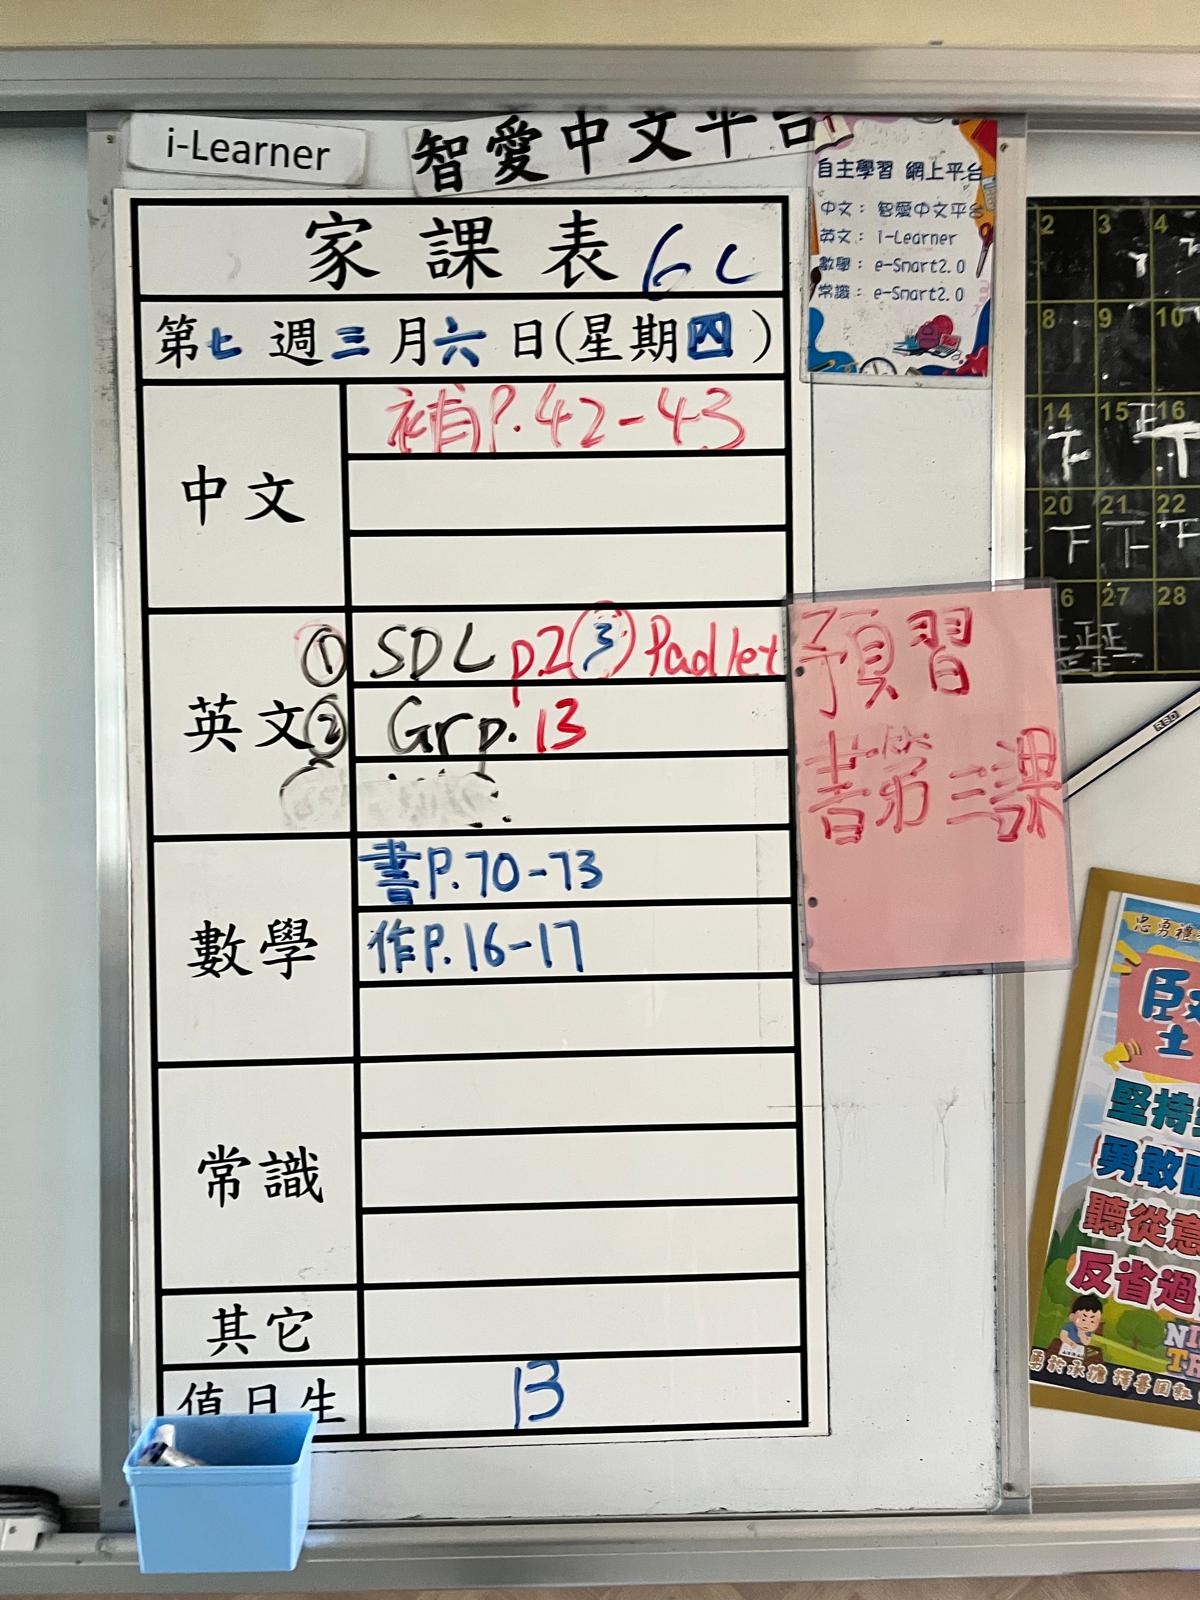 i-Learner
智愛中文平台
自主學習 網上平台
中文: 智愛中文平台
英文: i-Learner
數學: e-Smart2.0
常識: e-Smart2.0
家課表 6C
第七週三月六日(星期四)
中文
補P.42-43
英文
① SDL p2(3) Padlet
② Grp. 13
數學
書P.70-73
作P.16-17
常識
其它
值日生
13
預習
書第三課
2 3 4
8 9 10
14 15 16
下 正
20 21 22
下 下 下
27 28
正正
RED
忠勇禮
堅持
勇敢
聽從意
反省過
勇於承擔 擇善固執